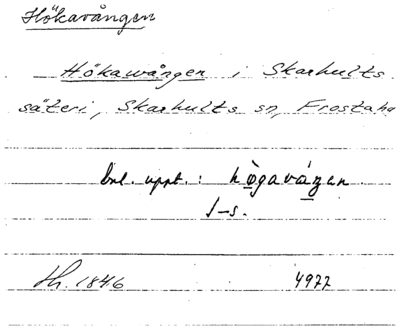 Hökavången
Hökawången i Skarhults
säteri, Skarhults sn, Frosta hd
Enl. uppt.: hògavágen
1-s.
Hh. 1846 4977